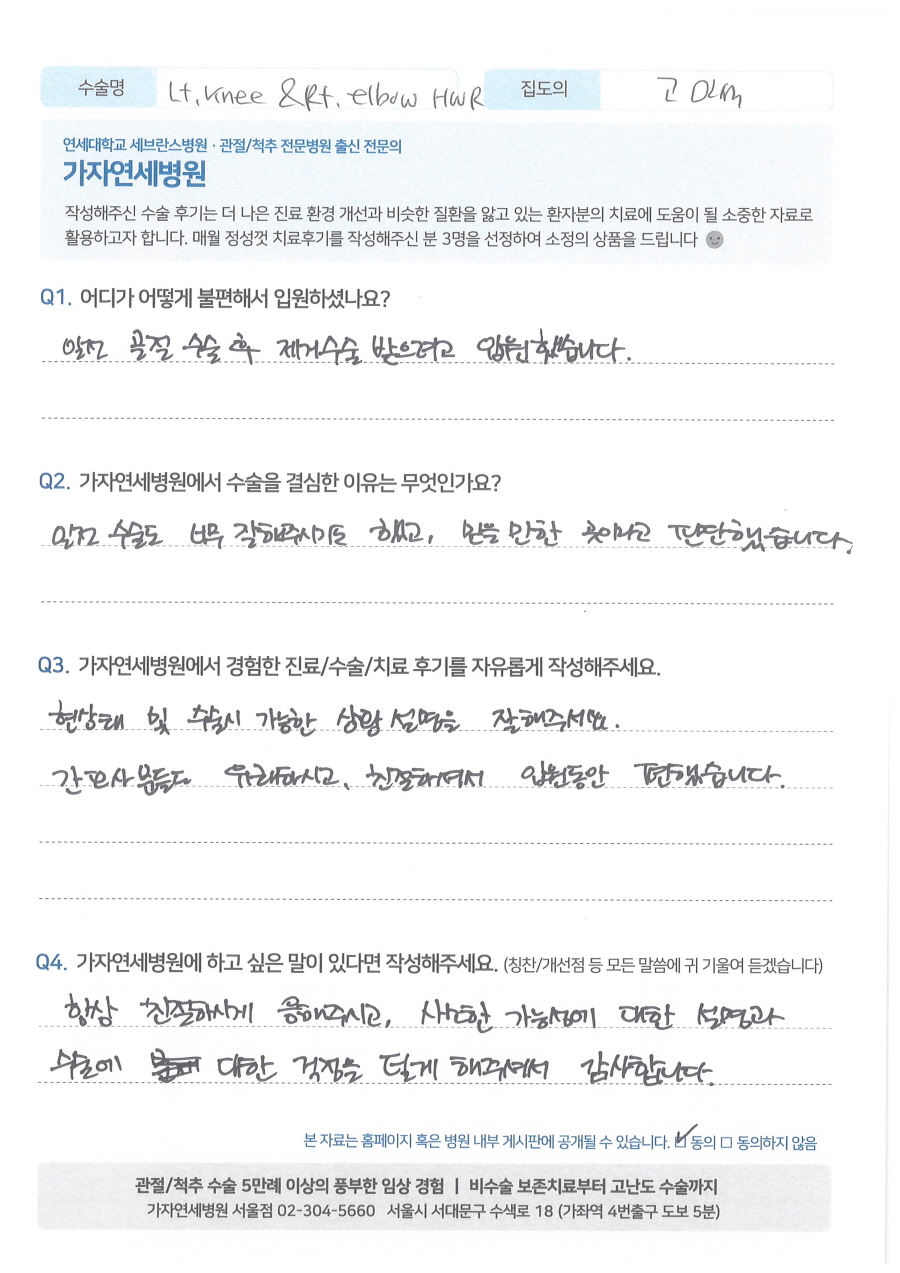 수술명 Lt. Knee & Rt. elbow HWR 집도의 고
연세대학교 세브란스병원 · 관절/척추 전문병원 출신 전문의
가자연세병원
작성해주신 수술 후기는 더 나은 진료 환경 개선과 비슷한 질환을 앓고 있는 환자분의 치료에 도움이 될 소중한 자료로
활용하고자 합니다. 매월 정성껏 치료후기를 작성해주신 분 3명을 선정하여 소정의 상품을 드립니다
Q1. 어디가 어떻게 불편해서 입원하셨나요?
앞전 골절 수술 후 제거수술 받으려고 입원했습니다.
Q2. 가자연세병원에서 수술을 결심한 이유는 무엇인가요?
앞전 수술도 너무 잘해주시기도 했고, 믿을 만한 곳이라고 판단했습니다.
Q3. 가자연세병원에서 경험한 진료/수술/치료 후기를 자유롭게 작성해주세요.
현상태 및 수술시 가능한 상황 설명을 잘해주셔요.
간호사분들도 유쾌하시고, 친절하셔서 입원동안 편했습니다.
Q4. 가자연세병원에 하고 싶은 말이 있다면 작성해주세요. (칭찬/개선점 등 모든 말씀에 귀 기울여 듣겠습니다)
항상 친절하시게 응해주시고, 사소한 가능성에 대한 설명과
수술에 대한 걱정을 덜게 해주셔서 감사합니다.
본 자료는 홈페이지 혹은 병원 내부 게시판에 공개될 수 있습니다. ☑ 동의 ☐ 동의하지 않음
관절/척추 수술 5만례 이상의 풍부한 임상 경험 | 비수술 보존치료부터 고난도 수술까지
가자연세병원 서울점 02-304-5660 서울시 서대문구 수색로 18 (가좌역 4번출구 도보 5분)